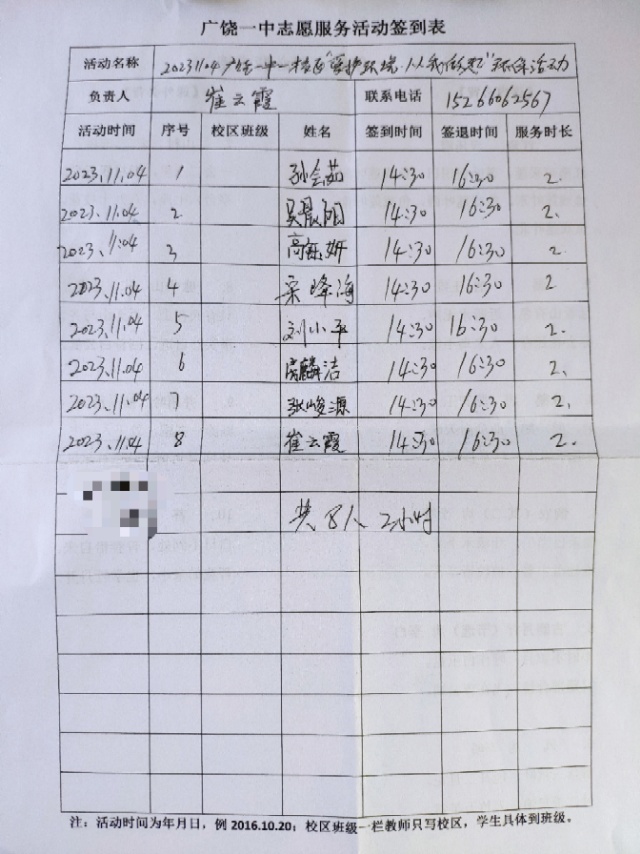 广饶一中志愿服务活动签到表
活动名称 20231104广饶一中一校区"爱护环境,从我做起"环保活动
负责人 崔云霞 联系电话 15266062567
活动时间 序号 校区班级 姓名 签到时间 签退时间 服务时长
2023.11.04 1 孙会茹 14:30 16:30 2.
2023.11.04 2 吴晨阳 14:30 16:30 2.
2023.11.04 3 高毓妍 14:30 16:30 2.
2023.11.04 4 梁峰海 14:30 16:30 2
2023.11.04 5 刘小平 14:30 16:30 2.
2023.11.04 6 麟洁 14:30 16:30 2.
2023.11.04 7 张峻源 14:30 16:30 2.
2023.11.04 8 崔云霞 14:30 16:30 2.
共8人 2小时
注:活动时间为年月日,例 2016.10.20;校区班级一栏教师只写校区,学生具体到班级。